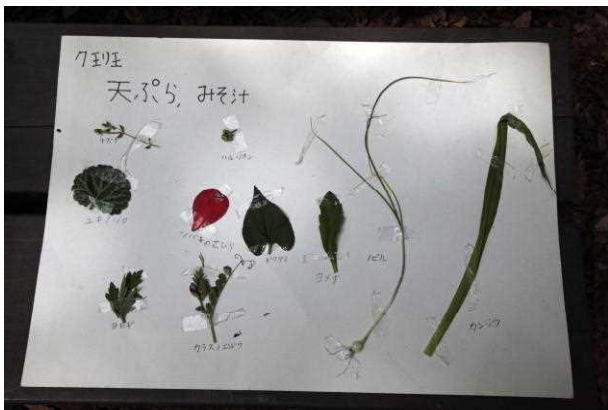 7班
天ぷら，みそ汁
ハルジオン
ユキノシタ
ツバキの花びら
ドクダミ
ヨメナ
ノビル
ヨモギ
カラスノエンドウ
カンゾウ